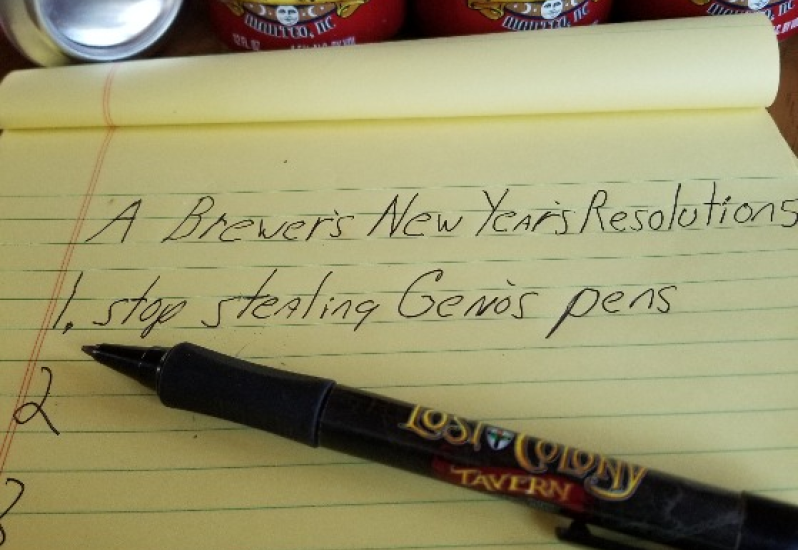 MANTEO, NC
MANTEO, NC
12 FL OZ
A Brewer's New Year's Resolutions
1. stop stealing Geno's pens
2
3
LOST COLONY
TAVERN